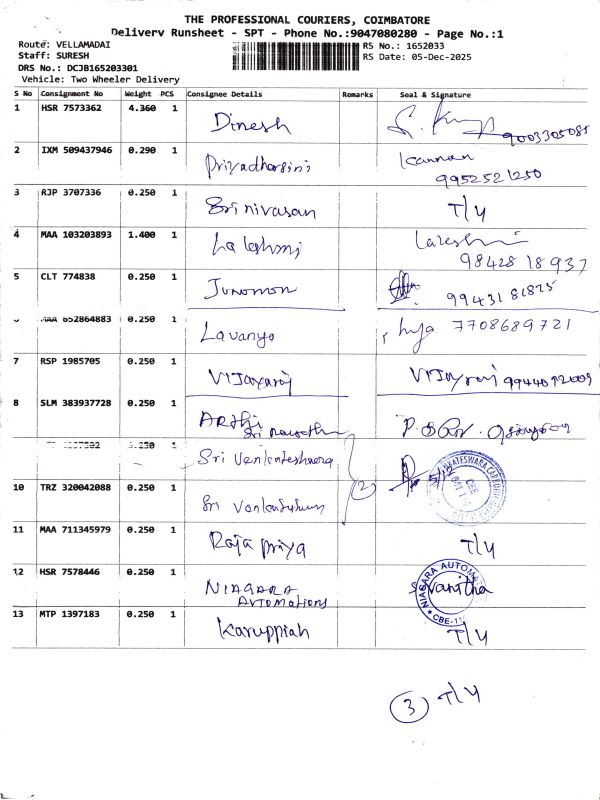 THE PROFESSIONAL COURIERS, COIMBATORE
Delivery Runsheet - SPT - Phone No.:9047080280 - Page No.:1
Route: VELLAMADAI
RS No.: 1652033
Staff: SURESH
RS Date: 05-Dec-2025
DRS No.: DCJB165203301
Vehicle: Two Wheeler Delivery
S No Consignment No Weight PCS Consignee Details Remarks Seal & Signature
1 HSR 7573362 4.360 1 Dinesh 9003305085
2 IXM 509437946 0.290 1 Priyadharsini Kannan
9952521250
3 RJP 3707336 0.250 1 Srinivasan T/4
4 MAA 103203893 1.400 1 Lakshmi
98428 18937
5 CLT 774838 0.250 1 Junomon 99431 81875
652864883 0.250 1 Lavanya 7708689721
7 RSP 1985705 0.250 1 VIJayaraj VIJayraj
8 SLM 383937728 0.250 1 ARthi
1 Sri Venkateshwara 5/12
10 TRZ 320042088 0.250 1 Sri (2)
11 MAA 711345979 0.250 1 Raja priya T/4
12 HSR 7578446 0.250 1 NIAGARA
AUTOMATIONS
NIAGARA CBE-11
13 MTP 1397183 0.250 1 Karuppiah T/4
3 T/4